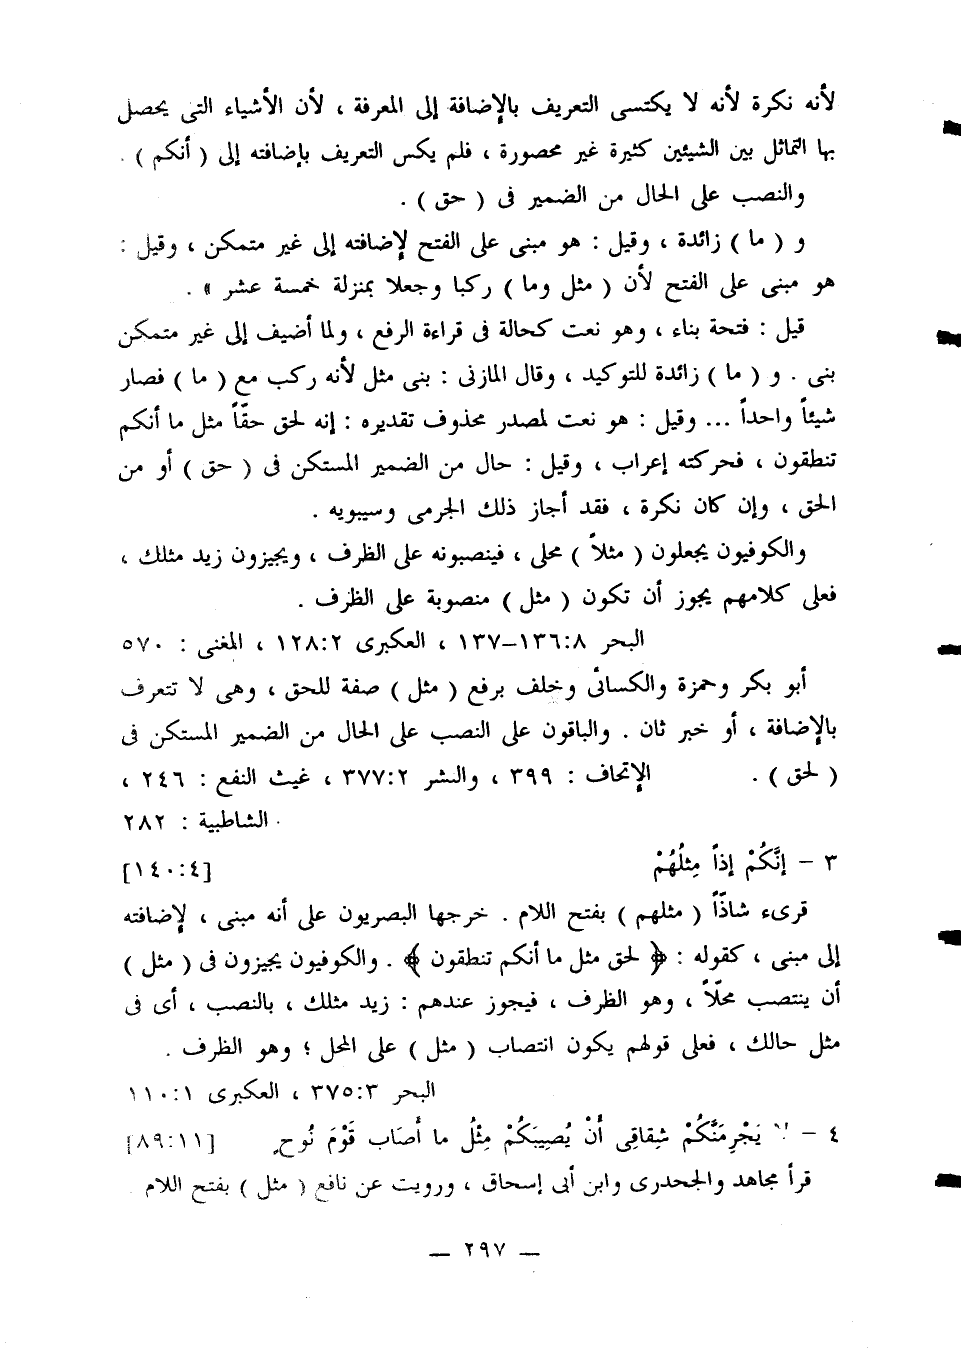 لأنه نكرة لأنه لا يكتسى التعريف بالإضافة إلى المعرفة ، لأن الأشياء التى يحصل
بها التماثل بين الشيئين كثيرة غير محصورة ، فلم يكس التعريف بإضافته إلى ( أنكم ) .
والنصب على الحال من الضمير فى ( حق ) .
و ( ما ) زائدة ، وقيل : هو مبنى على الفتح لإضافته إلى غير متمكن ، وقيل :
هو مبنى على الفتح لأن ( مثل وما ) ركبا وجعلا بمنزلة خمسة عشر » .
قيل : فتحة بناء ، وهو نعت كحالة فى قراءة الرفع ، ولما أضيف إلى غير متمكن
بنى . و ( ما ) زائدة للتوكيد ، وقال المازنى : بنى مثل لأنه ركب مع ( ما ) فصار
شيئاً واحداً ... وقيل : هو نعت لمصدر محذوف تقديره : إنه لحق حقّاً مثل ما أنكم
تنطقون ، فحركته إعراب ، وقيل : حال من الضمير المستكن فى ( حق ) أو من
الحق ، وإن كان نكرة ، فقد أجاز ذلك الجرمى وسيبويه .
والكوفيون يجعلون ( مثلاً ) محلى ، فينصبونه على الظرف ، ويجيزون زيد مثلك ،
فعلى كلامهم يجوز أن تكون ( مثل ) منصوبة على الظرف .
البحر ٨:١٣٦–١٣٧ ، العكبرى ٢:١٢٨ ، المغنى : ٥٧٠
أبو بكر وحمزة والكسائى وخلف برفع ( مثل ) صفة للحق ، وهى لا تتعرف
بالإضافة ، أو خبر ثان . والباقون على النصب على الحال من الضمير المستكن فى
( لحق ) . الإتحاف : ٣٩٩ ، والنشر ٢:٣٧٧ ، غيث النفع : ٢٤٦ ،
الشاطبية : ٢٨٢
٣ – إنَّكُمْ إذاً مِثلُهُمْ [٤:١٤٠]
قرىء شاذّاً ( مثلهم ) بفتح اللام . خرجها البصريون على أنه مبنى ، لإضافته
إلى مبنى ، كقوله : ﴿ لحق مثل ما أنكم تنطقون ﴾ . والكوفيون يجيزون فى ( مثل )
أن ينتصب محلّاً ، وهو الظرف ، فيجوز عندهم : زيد مثلك ، بالنصب ، أى فى
مثل حالك ، فعلى قولهم يكون انتصاب ( مثل ) على المحل ؛ وهو الظرف .
البحر ٣:٣٧٥ ، العكبرى ١:١١٠
٤ – لا يَجْرِمَنَّكُمْ شِقاقِى أَنْ يُصِيبَكُمْ مِثْلُ ما أَصَاب قَوْمَ نُوح [١١:٨٩]
قرأ مجاهد والجحدرى وابن أبى إسحاق ، ورويت عن نافع ( مثل ) بفتح اللام
— ٢٩٧ —